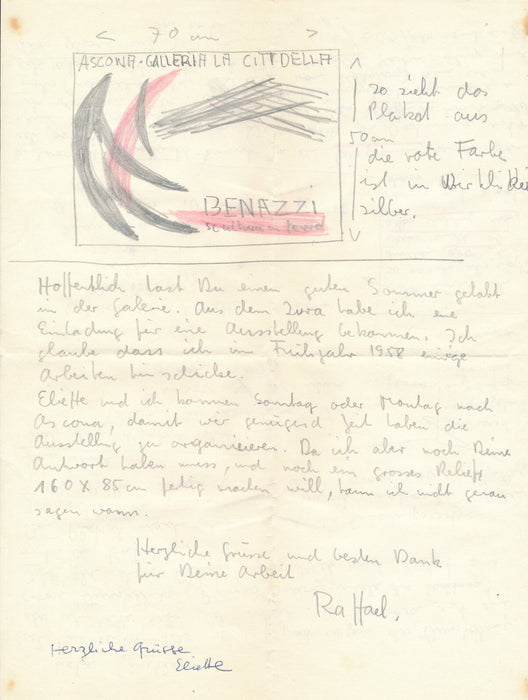 < 70 cm >
ASCONA · GALLERIA LA CITTDELLA
BENAZZI
scultura in ferro
so sieht das
Plakat aus
50 cm
die rote Farbe
ist in Wirklichkeit
silber.
Hoffentlich hast Du einen guten Sommer gehabt
in der Galerie. Aus dem Jura habe ich eine
Einladung für eine Ausstellung bekommen. Ich
glaube dass ich im Frühjahr 1958 einige
Arbeiten hinschicke.
Eliette und ich kommen Sonntag oder Montag nach
Ascona, damit wir genügend Zeit haben die
Ausstellung zu organisieren. Da ich aber noch Deine
Antwort haben muss, und noch ein grosses Relief
160 X 85 cm fertig machen will, kann ich nicht genau
sagen wann.
Herzliche Grüsse und besten Dank
für Deine Arbeit
Raffael.
Herzliche Grüsse
Eliette